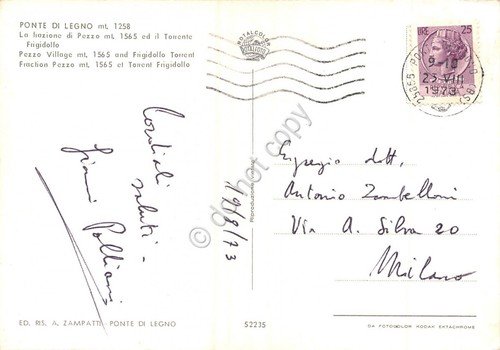 PONTE DI LEGNO mt. 1258
La frazione di Pezzo mt. 1565 ed il Torrente
Frigidolfo
Pezzo Village mt. 1565 and Frigidolfo Torrent
Fraction Pezzo mt. 1565 et Torrent Frigidolfo
ROTALCOLOR
LIRE 25
25056 PO
9-10
23 VIII
1973
(BS)
Cordiali
saluti -
Gianni
19/8/73
Egregio dott.
Antonio Zambelloni
Via A. Silva 20
Milano
do not copy
ED. RIS. A. ZAMPATTI - PONTE DI LEGNO
S2235
DA FOTOCOLOR KODAK EKTACHROME